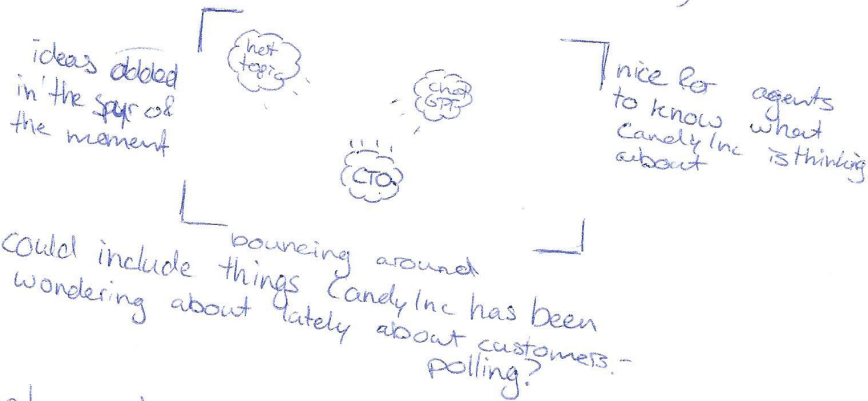 ideas added
in the spur of
the moment
hot
topic
Chat
GPT
CTO
nice for agents
to know what
Candy Inc is thinking
about
bouncing around
could include things Candy Inc has been
wondering about lately about customers -
polling?